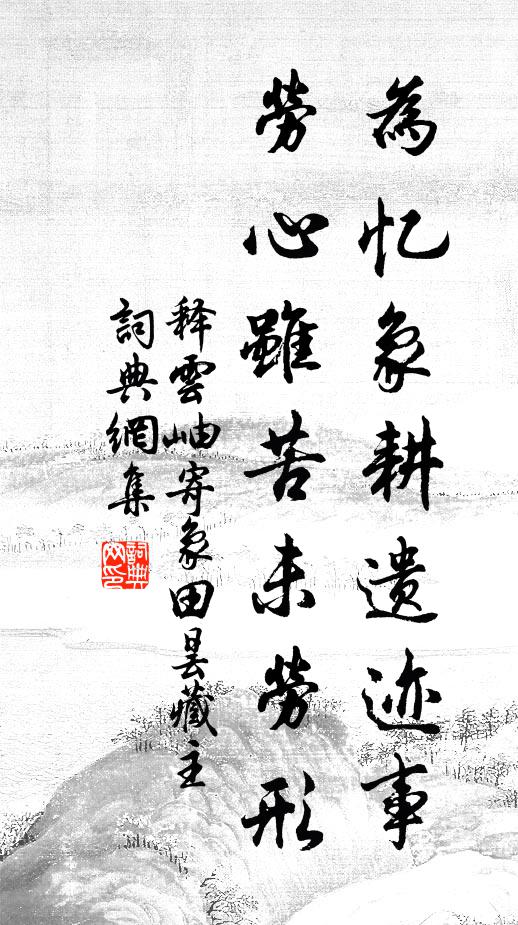 為忆象耕遗迹事
勞心雖苦未勞形
释雲岫寄象田昙藏主
詞典網集
詞典网印